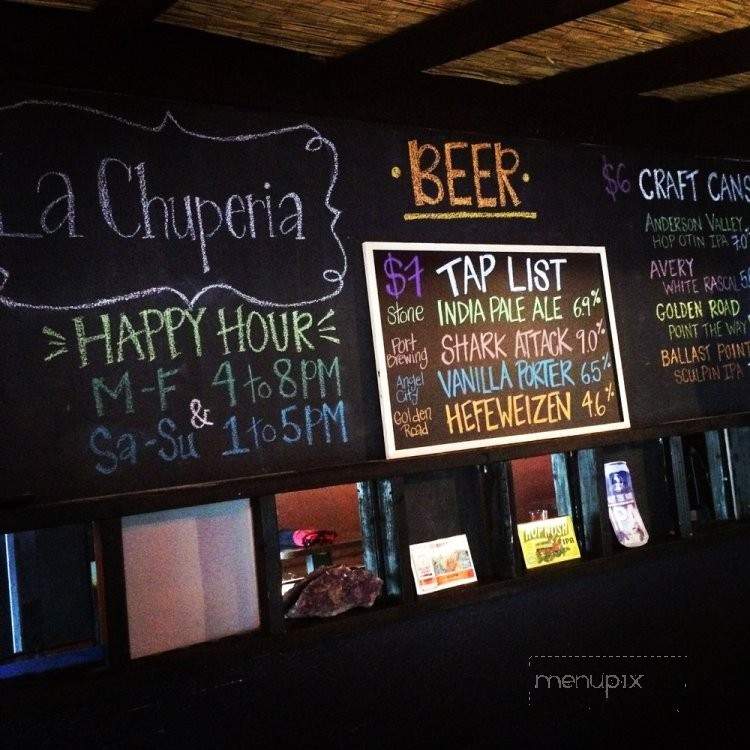 La Chuperia
HAPPY HOUR
M-F 4 to 8PM
&
Sa-Su 1 to 5PM
• BEER •
$7 TAP LIST
Stone INDIA PALE ALE 6.9%
Port Brewing SHARK ATTACK 9.0%
Angel City VANILLA PORTER 6.5%
Golden Road HEFEWEIZEN 4.6%
$6 CRAFT CANS
ANDERSON VALLEY
HOP OTIN IPA 7.0
AVERY
WHITE RASCAL 5
GOLDEN ROAD
POINT THE WAY
BALLAST POINT
SCULPIN IPA
HOP
IPA
menupix